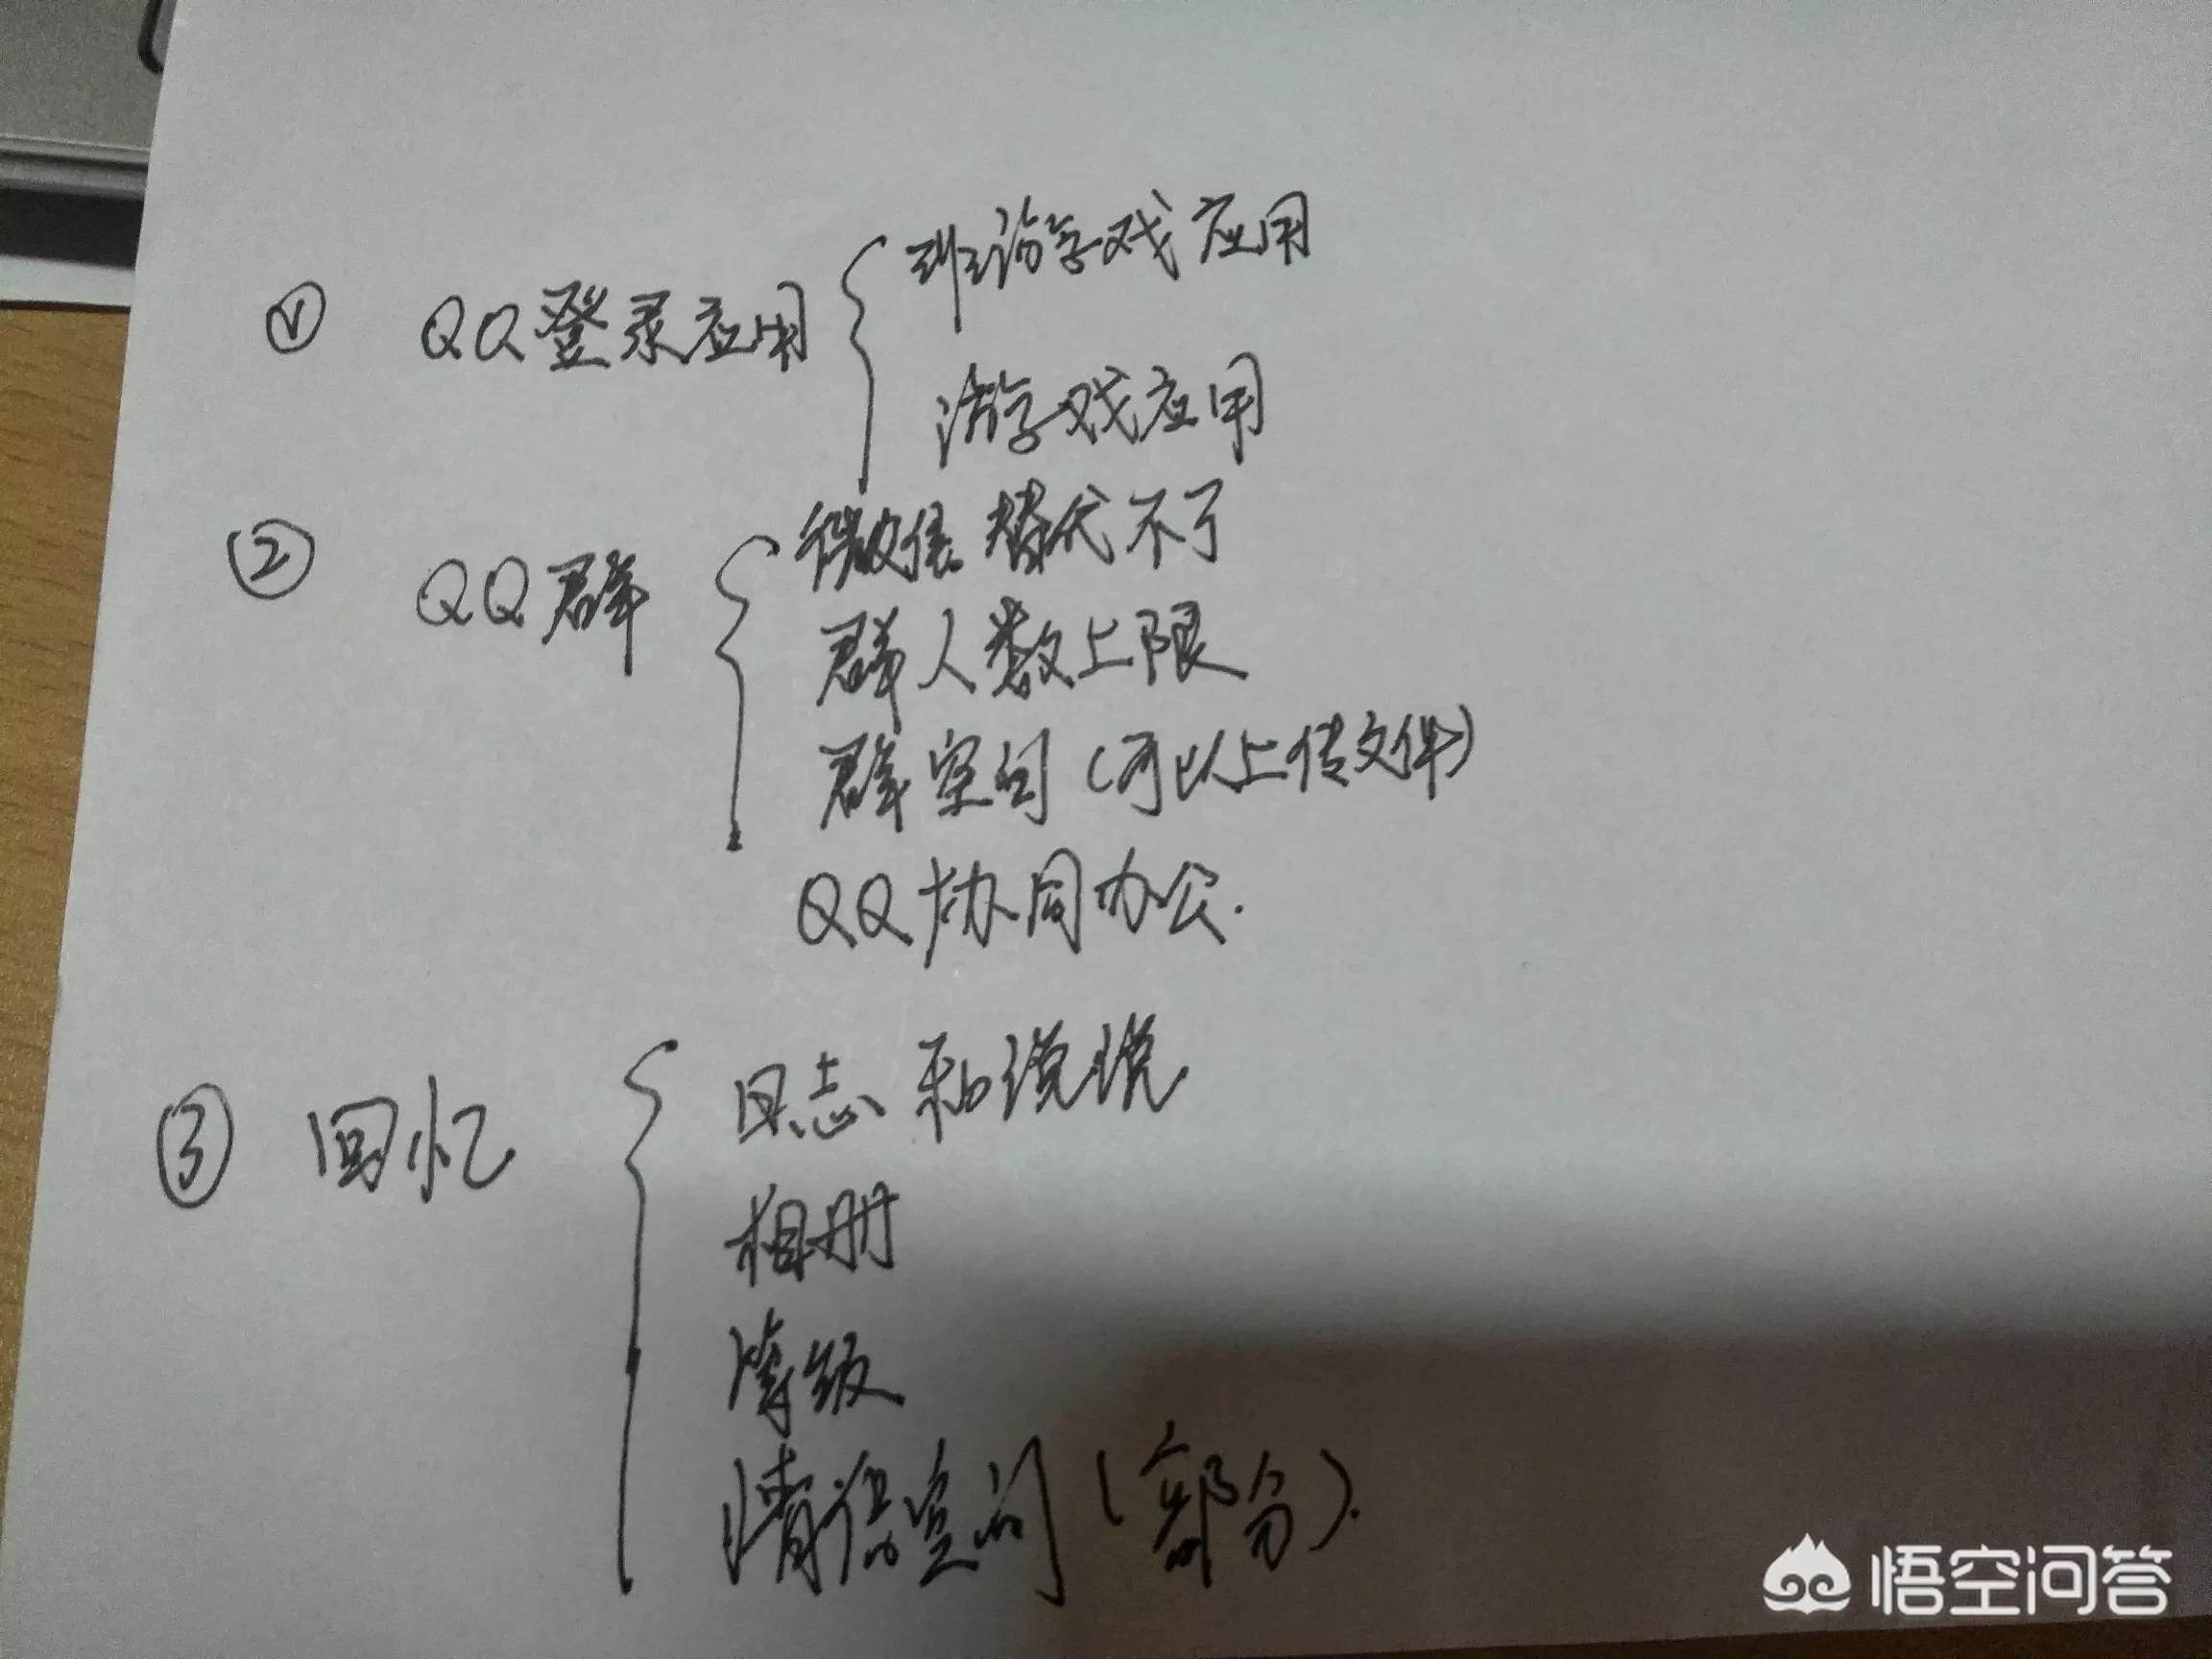 ① QQ登录应用
非游戏应用
游戏应用
② QQ群
微信替代不了
群人数上限
群空间(可以上传文件)
QQ协同办公.
③ 回忆
日志和说说
相册
等级
情侣空间(部分).
悟空问答